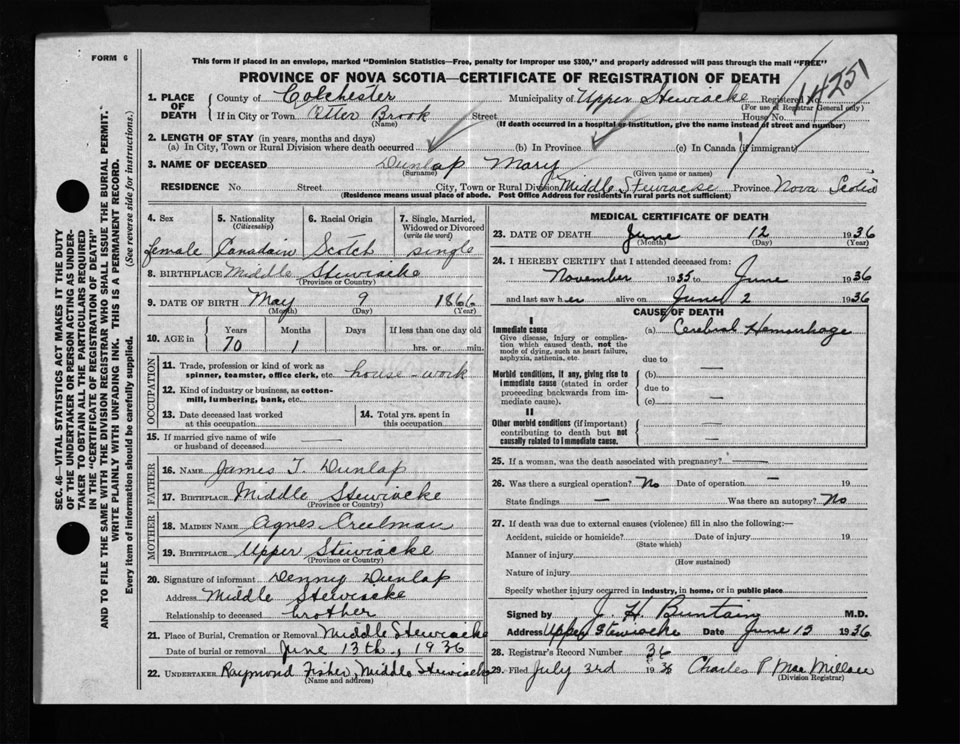 FORM 6
This form if placed in an envelope, marked "Dominion Statistics—Free, penalty for improper use $300," and properly addressed will pass through the mail "FREE"
PROVINCE OF NOVA SCOTIA—CERTIFICATE OF REGISTRATION OF DEATH
1. PLACE OF DEATH
County of Colchester Municipality of Upper Stewiacke Registered No. 14251
(For use of Registrar General only)
If in City or Town Otter Brook Street House No.
(Name) (If death occurred in a hospital or institution, give the name instead of street and number)
2. LENGTH OF STAY (in years, months and days)
(a) In City, Town or Rural Division where death occurred (b) In Province (c) In Canada (if immigrant)
3. NAME OF DECEASED Dunlap Mary
(Surname) (Given name or names)
RESIDENCE No. Street City, Town or Rural Division Middle Stewiacke Province Nova Scotia
(Residence means usual place of abode. Post Office Address for residents in rural parts not sufficient)
4. Sex 5. Nationality (Citizenship) 6. Racial Origin 7. Single, Married, Widowed or Divorced (write the word)
female Canadain Scotch single
8. BIRTHPLACE Middle Stewiacke
(Province or Country)
9. DATE OF BIRTH May 9 1866
(Month) (Day) (Year)
10. AGE in Years Months Days If less than one day old
70 1 hrs. or min.
OCCUPATION
11. Trade, profession or kind of work as spinner, teamster, office clerk, etc. house-work
12. Kind of industry or business, as cotton-mill, lumbering, bank, etc.
13. Date deceased last worked at this occupation
14. Total yrs. spent in this occupation
15. If married give name of wife or husband of deceased —
FATHER
16. NAME James T. Dunlap
17. BIRTHPLACE Middle Stewiacke
(Province or Country)
MOTHER
18. MAIDEN NAME Agnes Creelman
19. BIRTHPLACE Upper Stewiacke
(Province or Country)
20. Signature of informant Denny Dunlap
Address Middle Stewiacke
Relationship to deceased brother
21. Place of Burial, Cremation or Removal Middle Stewiacke
Date of burial or removal June 13th, 1936
22. UNDERTAKER Raymond Fisher, Middle Stewiacke
(Name and address)
MEDICAL CERTIFICATE OF DEATH
23. DATE OF DEATH June 12 1936
(Month) (Day) (Year)
24. I HEREBY CERTIFY that I attended deceased from:
November 1935 to June 1936
and last saw her alive on June 2 1936
CAUSE OF DEATH
I
Immediate cause (a) Cerebral Hemorrhage
Give disease, injury or complication which caused death, not the mode of dying, such as heart failure, asphyxia, asthenia, etc.
due to
Morbid conditions, if any, giving rise to immediate cause (stated in order proceeding backwards from immediate cause).
(b) —
due to
(c) —
II
Other morbid conditions (if important) contributing to death but not causally related to immediate cause.
25. If a woman, was the death associated with pregnancy? —
26. Was there a surgical operation? No Date of operation — 19
State findings — Was there an autopsy? No
27. If death was due to external causes (violence) fill in also the following:—
Accident, suicide or homicide? Date of injury 19
(State which)
Manner of injury
(How sustained)
Nature of injury
Specify whether injury occurred in industry, in home, or in public place
Signed by J. H. Buntain M.D.
Address Upper Stewiacke Date June 13 1936
28. Registrar's Record Number 36
29. Filed July 3rd 1936 Charles P MacMillan
(Division Registrar)
SEC. 46. VITAL STATISTICS ACT MAKES IT THE DUTY
OF THE UNDERTAKER OR PERSON ACTING AS UNDER-
TAKER TO OBTAIN ALL THE PARTICULARS REQUIRED
IN THE "CERTIFICATE OF REGISTRATION OF DEATH"
AND TO FILE THE SAME WITH THE DIVISION REGISTRAR WHO SHALL ISSUE THE BURIAL PERMIT.
WRITE PLAINLY WITH UNFADING INK. THIS IS A PERMANENT RECORD.
Every item of information should be carefully supplied. (See reverse side for instructions.)